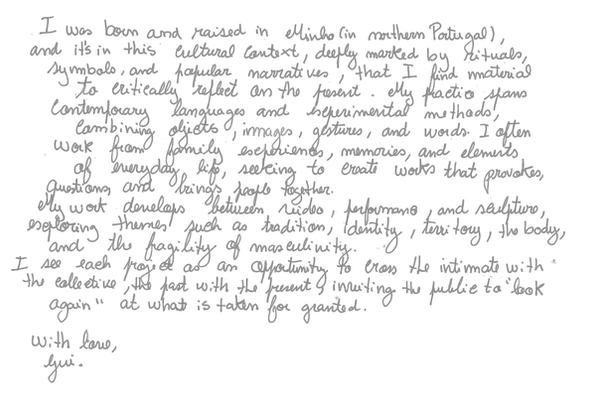 I was born and raised in Minho (in northern Portugal),
and it's in this cultural context, deeply marked by rituals,
symbols, and popular narratives, that I find material
to critically reflect on the present. My practice spans
contemporary languages and experimental methods,
combining objects, images, gestures, and words. I often
work from family experiences, memories, and elements
of everyday life, seeking to create works that provokes,
questions, and brings people together.
My work develops between video, performance, and sculpture,
exploring themes such as tradition, identity, territory, the body,
and the fragility of masculinity.
I see each project as an opportunity to cross the intimate with
the collective, the past with the present, inviting the public to "look
again" at what is taken for granted.
With love,
Gui.